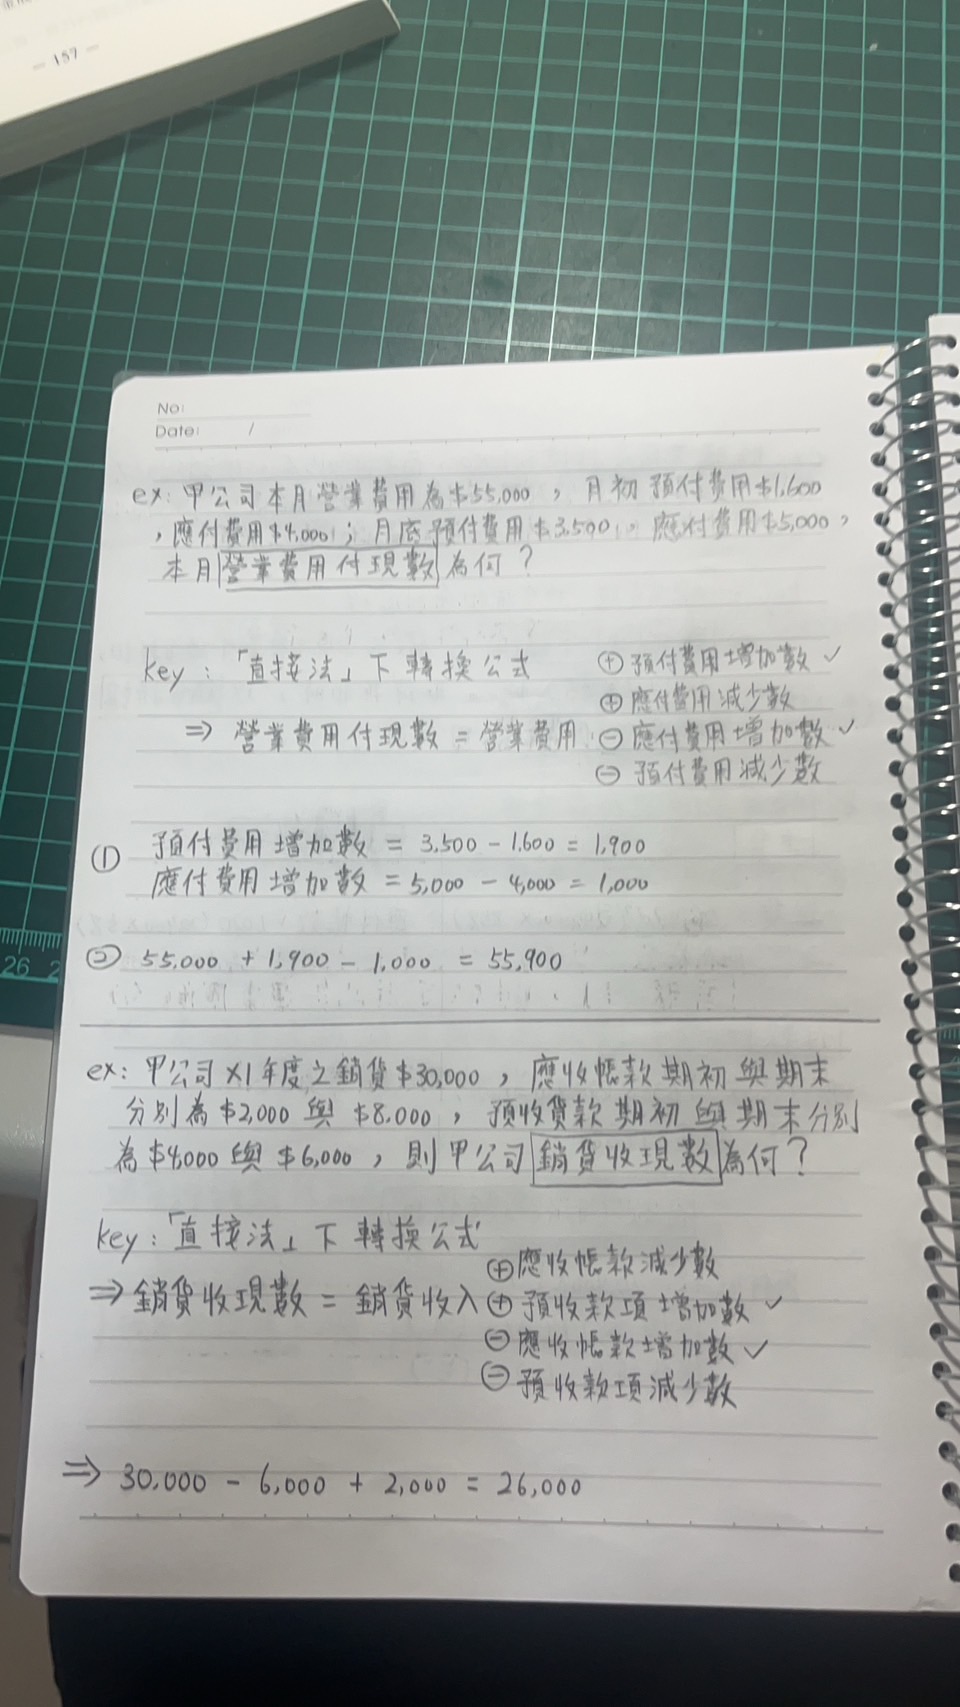 — 157 —
No:
Date: /
ex: 甲公司本月營業費用為$55,000，月初預付費用$1,600
，應付費用$4,000；月底預付費用$3,500，應付費用$5,000，
本月營業費用付現數為何？
key：「直接法」下轉換公式
⊕預付費用增加數✓
⊕應付費用減少數
⇒ 營業費用付現數 = 營業費用 ⊖應付費用增加數✓
⊖ 預付費用減少數
① 預付費用增加數 = 3,500 - 1,600 = 1,900
應付費用增加數 = 5,000 - 4,000 = 1,000
② 55,000 + 1,900 - 1,000 = 55,900
ex: 甲公司X1年度之銷貨$30,000，應收帳款期初與期末
分別為$2,000與$8,000，預收貨款期初與期末分別
為$4,000與$6,000，則甲公司銷貨收現數為何？
key：「直接法」下轉換公式
⊕應收帳款減少數
⇒銷貨收現數 = 銷貨收入⊕預收款項增加數✓
⊖應收帳款增加數✓
⊖預收款項減少數
⇒ 30,000 - 6,000 + 2,000 = 26,000
26 2